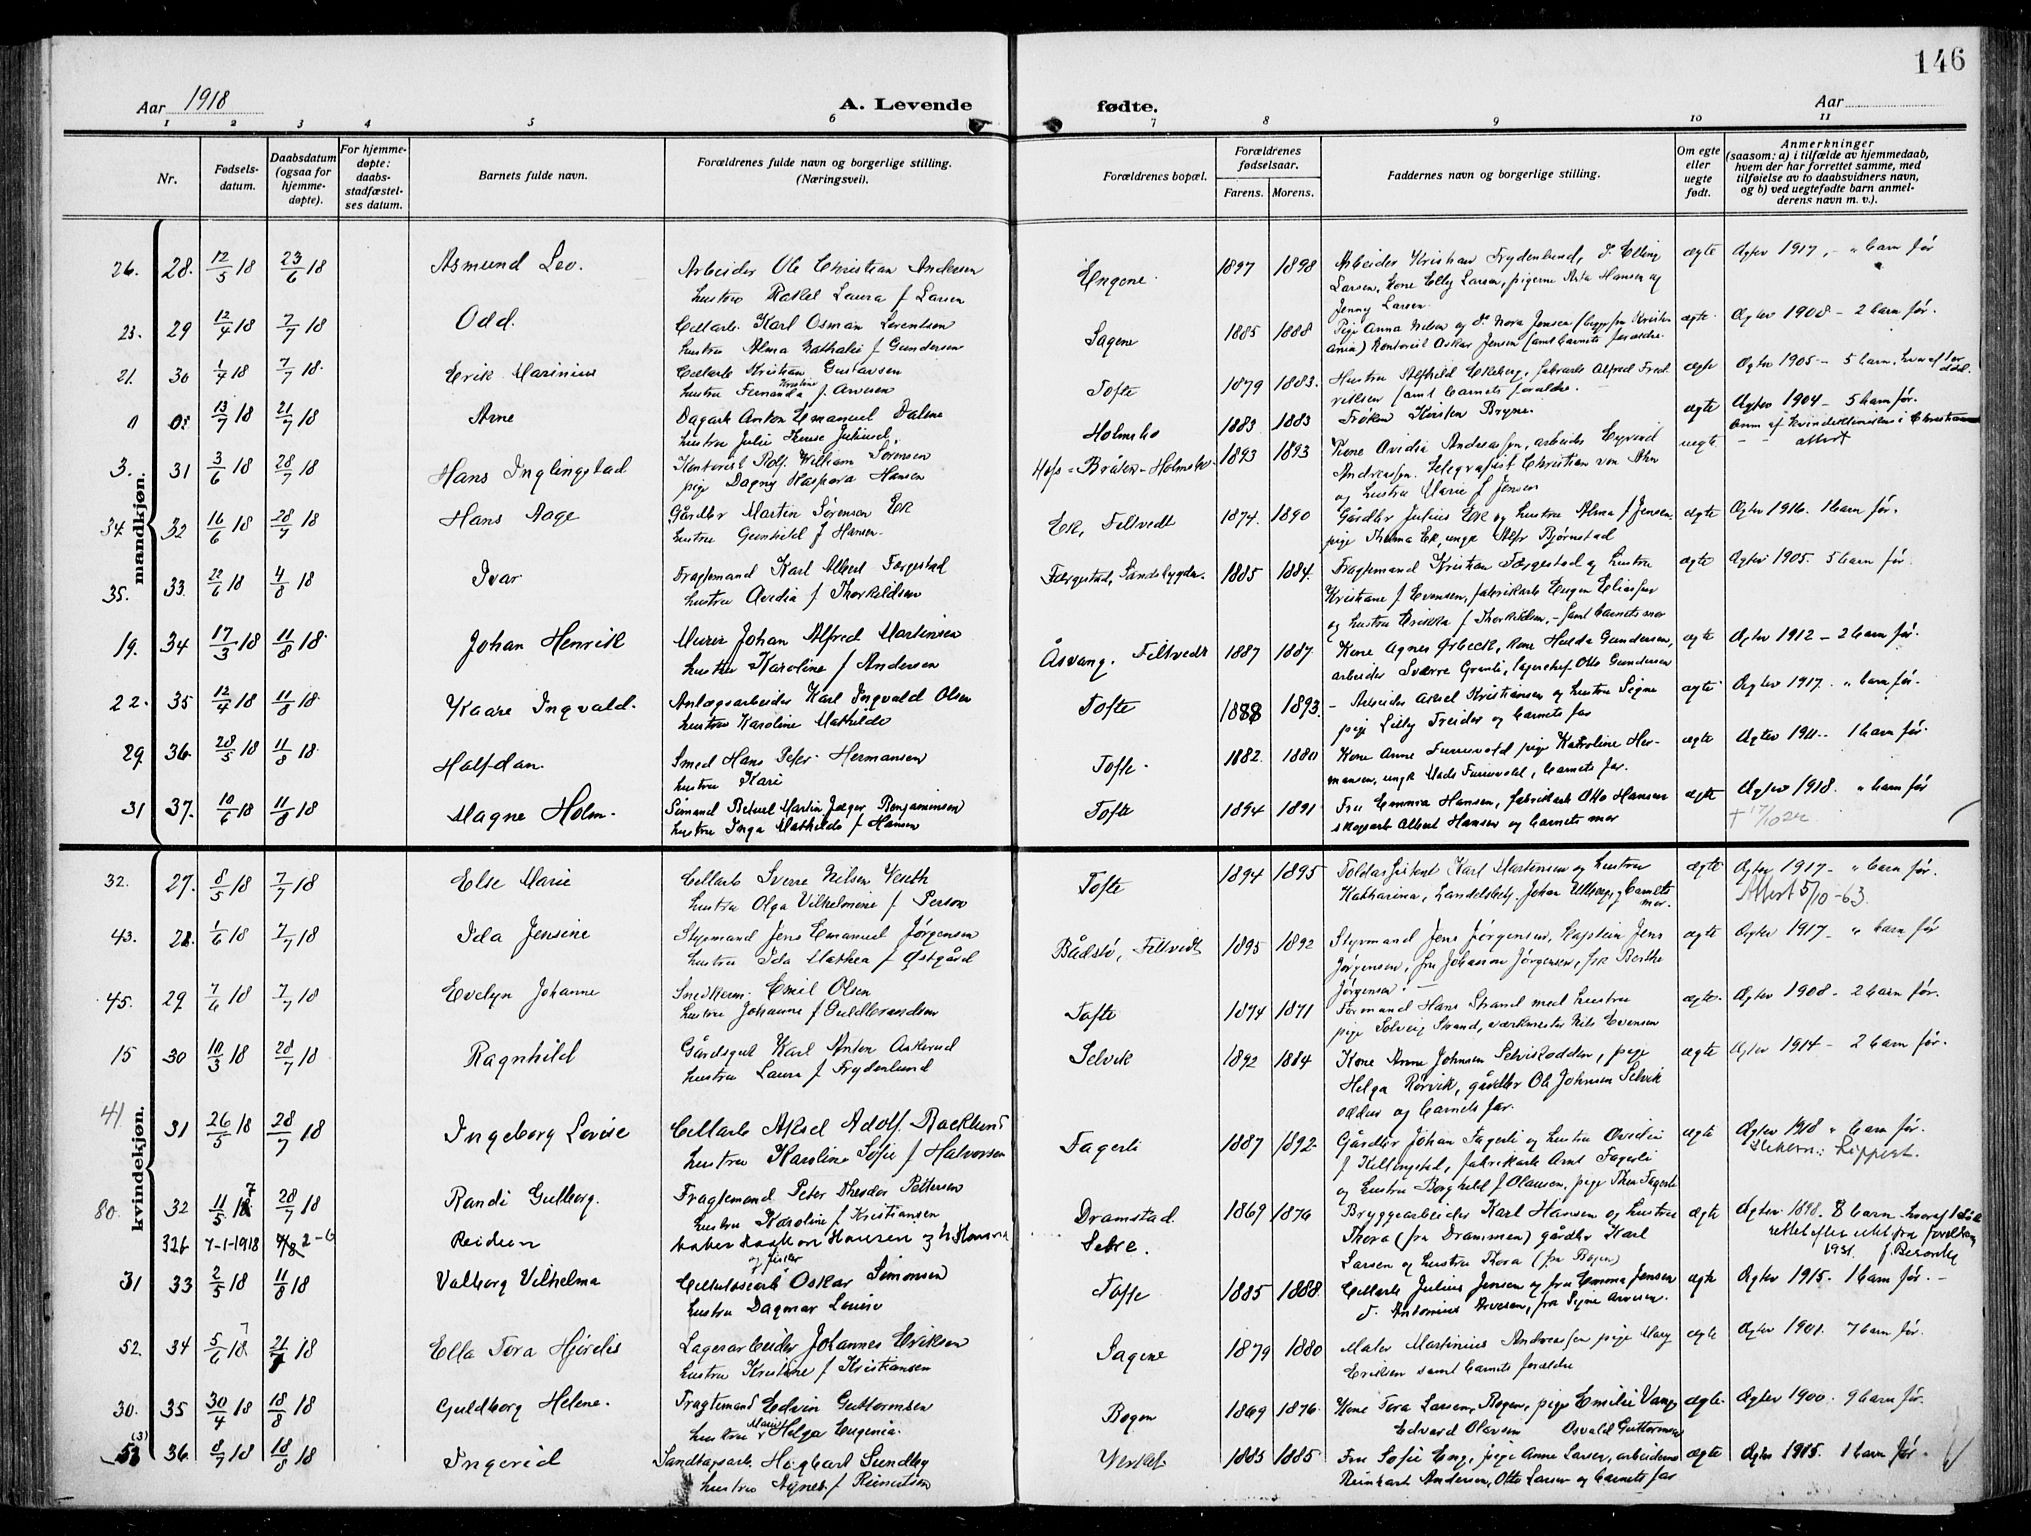 146
Aar 1918
A. Levende
fødte.
Aar
1 2 3 4 5 6 7 8 9 10 11
Nr.
Fødsels-
datum.
Daabsdatum
(ogsaa for
hjemme-
døpte).
For hjemme-
døpte:
daabs-
stadfæstel-
ses datum.
Barnets fulde navn.
Forældrenes fulde navn og borgerlige stilling.
(Næringsvei).
Forældrenes bopæl.
Forældrenes
fødselsaar.
Farens. Morens.
Faddernes navn og borgerlige stilling.
Om egte
eller
uegte
født.
Anmerkninger
(saasom: a) i tilfælde av hjemmedaab,
hvem der har forrettet samme, med
tilføielse av to daabsvidners navn,
og b) ved uegtefødte barn anmel-
derens navn m. v.).
mandkjøn.
26. 28. 12/5 18 23/6 18 Asmund Leo. Arbeider Ole Christian Andersen Engene 1897 1898 Arbeider Kristian Frydenlund, d. Elling ægte Ægtev 1917, - " barn før
hustru Rakel Laura f Larsen Larsen, kone Elly Larsen, pigerne Asta Hansen og
Jenny Larsen.
23. 29 12/4 18 7/7 18 Odd. Cellarb. Karl Osman Lorentsen Sagene 1885 1888 Pige Anna Nilsen og d. Nora Jensen ægte Ægtev 1908 - 2 barn før.
hustru Alma Nathalie f Gundersen ania) Kontorist Oskar Jensen samt barnets forældre.
21. 30 1/4 18 7/7 18. Erik Marinius Cellarb Kristian Gustavsen Tofte 1879 1883. Hustru Alfhild Ekeberg, fabrarb Alfred Fred ægte Ægtev 1905 - 5 barn, hvoraf 1 er
død.
hustru Fernanda Kristine f. Arvesen riksen samt barnets forældre.
0 0: 13/7 18 21/7 18 Arne Dagarb Anton Emanuel Dalene Holmsbo 1883 1883 Frøken Kirsten Bryne. ægte Ægtev 1904 - 5 barn før.
hustru Julie f Juliusd.
3. 31 3/6 18 28/7 18 Hans Inglingstad Kontorist Rolf William Sørensen Holmsbo 1893 1893 Kone Ovidia Andreassen, arbeider Eyvind uegte attest
pige Dagny Kaspara Hansen Andreassen. Telegrafist Christian von Ahn
og hustru Marie f Jensen
34 32 16/6 18 28/7 18 Hans Aage Gårdbr Martin Sørensen Ek Ek, Filtvedt 1874. 1890 Gårdbr Julius Ek og hustru Alma f Jensen, ægte Ægtev 1916. 1 barn før.
hustru Gunhild f Hansen. pige Thelma Ek, ungk Alfr Bjørnstad
35. 33. 22/6 18 4/8 18 Ivar Fragtemand Karl Albert Færgestad Færgestad, Sandsbygda. 1885 1884. Fragtemand Kristian Færgestad og hustru ægte Ægtev 1905. 5 barn før.
hustru Ovedia f Thorkildsen Kristiane f Evensen, fabrikarb Eugen Eliassen
og hustru f Thorkildsen, - samt barnets mor
19. 34 17/3 18 11/8 18. Johan Henrik Murer Johan Alfred Martinsen Åsvang. Filtvedt 1887 1887. Kone Agnes Ørbeck, kone Hulda Gundersen, ægte Ægtev 1912 - 2 barn før.
hustru Karoline f Andersen arbeider Sverre Granli, lagerchef Otto Gundersen
22. 35 12/4 18 11/8 18. Kaare Ingvald. Anlægsarbeider Karl Ingvald Olsen Tofte 1888 1893. - Arbeider Aksel Kristiansen og hustru Signe ægte Ægtev 1917. " barn før.
hustru Karoline Mathilde pige Lilly Treider og barnets far
29. 36. 28/5 18 11/8 18. Halfdan. Smed Hans Peter Hermansen Tofte. 1882. 1880 Kone Anne Furuvold pige Katroline Her- ægte Ægtev 1911. 1 barn før.
hustru Kari mansen, ungk Mads Furuvold, barnets far.
31 37. 10/6 18 11/8 18 Magne Holm. Sømand Betuel Martin Jæger Benjaminsen Tofte 1894 1891 Fru Emma Hansen, fabrikarb Otto Hansen ægte Ægtev 1918. " barn før
hustru Inga Mathilde f Hansen skogsarb Albert Hansen og barnets mor † 17/10 24
kvindekjøn.
32. 27. 8/5 18 7/7 18 Else Marie Cellarb Sverre Nilsen Veseth Tofte 1894 1895 Toldassistent Karl Martinsen og hustru ægte Ægtev 1917 - " barn før.
hustru Olga Vilhelmine f Person Katharina, Johan og barnets mor. Attest 5/10-63
43. 28. 1/6 18 7/7 18 Ida Jensine Styrmand Jens Emanuel Jørgensen Bådstø, Filtvedt 1895 1892 Styrmand Jens Jørgensen, Kaptein Jens ægte Ægtev 1917 - " barn før
hustru Ida Mathea f Østgård Jørgensen, fru Johanna Jørgensen, frk Berthe
Jørgensen. -
45. 29. 7/6 18 7/7 18 Evelyn Johanne Snedkerm. Emil Olsen Tofte 1874 1871 Formand Hans Strand med hustru ægte. Ægtev 1908. 2 barn før.
hustru Johanne f Guldbrandsen pige Solveig Strand, værkmester Nils Evensen
15 30 10/3 18 28/7 18 Ragnhild Gårdsgut Karl Anton Askerud Selvik 1892 1884 Kone Anna Johnsen Selvikodden, pige ægte Ægtev 1914 - 2 barn før.
hustru Laura f Frydenlund Helga Rørvik, gårdbr Ole Johnsen Selvik
odden og barnets far.
41 31 26/5 18 28/7 18 Ingeborg Lovise Cellarb Aksel Adolf Backlund Fagerli 1887 1892. Gårdbr Johan Fagerli og hustru Ovedia ægte Ægtev 1918 " barn før.
hustru Karoline Sofie f Halvorsen f Killingstad, fabrikarb Arnt Fagerli
og hustru Borghild f Olausen, pige Thea Fagerli
80. 32 11/5 18 7 28/7 18 Randi Gulborg. Fragtemand Peter Theodor Pettersen Dramstad. 1869 1876 Bryggearbeider Karl Hansen og hustru ægte Ægtev 1898. 8 barn hvoraf 1 død
hustru Karoline f Kristiansen Thora (fra Drammen) gårdbr Karl
32b 7-1-1918 2-6 Reidun Baker Haakon Hansen Sætre. Larsen og hustru Thora (fra Bogen) 1931.
31 33 2/5 18 11/8 18 Valborg Vilhelma Cellulosearb og fisker Oskar Simonsen Tofte 1885 1888. Cellarb Julius Jensen og fru Emma Jensen ægte Ægtev 1915. 1 barn før. -
hustru Dagmar Louise d. Antonius Arvesen, fru Signe Arvesen.
52. 34 5/6 18 7 21/7 18 Ella Tora Hjørdis Lagerarbeider Johannes Eriksen Sagene 1879 1880 Maler Martinius Andreassen pige Mary ægte Ægtev 1901. 7 barn før.
hustru Kristine f Kristiansen Eriksen samt barnets forældre
30. 35 30/4 18 18/8 18 Guldborg Helene. Fragtemand Edvin Guttormsen Bogen 1869 1876. Kone Tora Larsen, Bogen, pige Emilie Vang, ægte. Ægtev 1900. 9 barn før.
hustru Marie Helga Eugenia. Edvard Olavsen Osvald Guttormsen
53 (3) 36. 8/7 18 18/8 18 Ingerid Sandtagsarb. Hagbart Sundby Verket 1885 1885. Fru Sofie Eng, pige Anne Larsen, arbeiderne ægte Ægtev 1915. 1 barn før.
hustru Agnes f Reinertsen Reinhart Andersen, Otto Larsen og barnets far